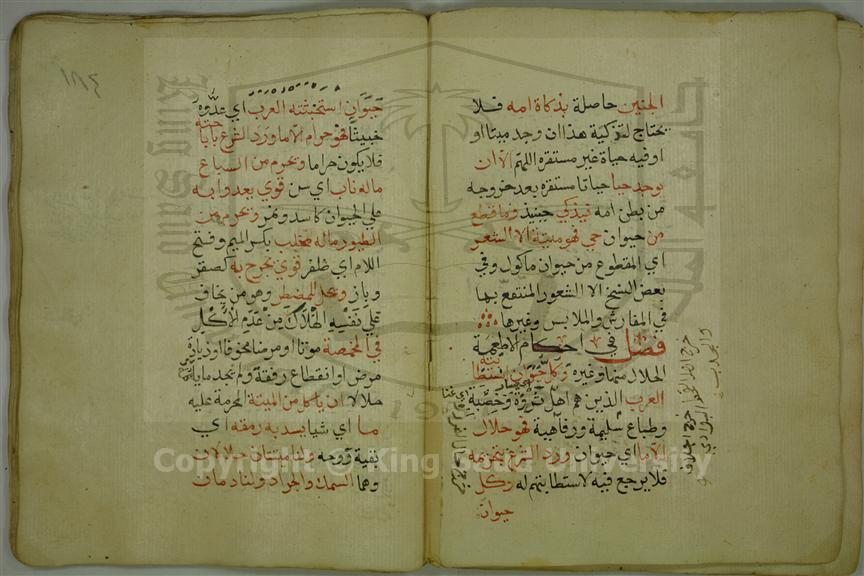 الجنين حاصلة بذكاة امه فلا
يحتاج لتذكية هذا ان وجد ميتا او
او فيه حياة غير مستقره اللهم الا ان
يوجد حيا حياتا مستقره بعد خروجه
من بطن امه فيذكى حينئذ وما قطع
من حيوان حي فهو ميتة الا الشعر
اي المقطوع من حيوان ماكول وفي
بعض النسخ الا الشعور المنتفع بها
في المفارش والملابس وغيرها
فصل في احكام الاطعمة
الحلال منها وغيره وكل حيوان استطابته
العرب الذين هم اهل ثروة وخصب
وطباع سليمة ورفاهية فهو حلال
الا ما اي حيوان ورد الشرع بتحريمه
فلا يرجع فيه لاستطابتهم له وكل
حيوان
حيوان استخبثته العرب اي عدوه
خبيثا فهو حرام الا ما ورد الشرع باباحته
فلا يكون حراما ويحرم من السباع
ماله ناب اي سن قوي يعدوا به
على الحيوان كاسد ونمر ويحرم من
الطيور ماله مخلب بكسر الميم وفتح
اللام اي ظفر قوي يجرح به كصقر
وباز ويحل للمضطر وهو من يخاف
على نفسه الهلاك من عدم الاكل
في المخمصة موتا او مرضا مخوفا او زيادة
مرض او انقطاع رفقة ولم يجد ما ياكله
حلالا ان ياكل من الميتة المحرمة عليه
ما اي شيا يسد به رمقه اي
بقية روحه ولنا ميتتان حلالان
وهما السمك والجراد ولنا دمان